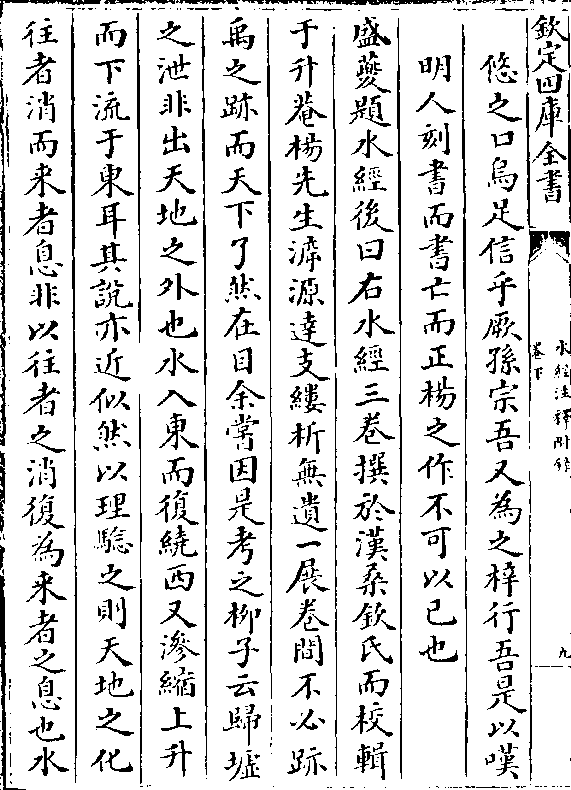 欽定四庫全書
水經注釋附錄
卷下
九
悠之口烏足信乎厥孫宗吾又為之梓行吾是以嘆
明人刻書而書亡而正楊之作不可以已也
盛夔題水經後曰右水經三卷撰於漢桑欽氏而校輯
于升菴楊先生滹源逹支縷析無遺一展卷間不必跡
禹之跡而天下了然在目余嘗因是考之柳子云歸墟
之泄非出天地之外也水入東而復繞西又滲縮上升
而下流于東耳其說亦近似然以理騐之則天地之化
往者消而来者息非以往者之消復為来者之息也水